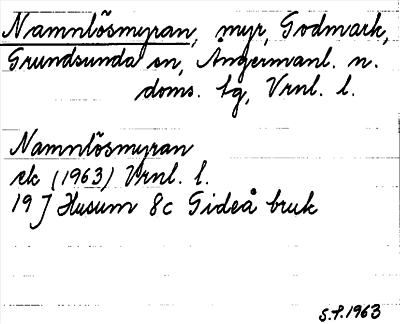 Namnlösmyran, myr, Godmark,
Grundsunda sn, Ångermanl. n.
doms. tg, Vrnl. l.
Namnlösmyran
ek (1963) Vrnl. l.
19 J Husum 8c Gideå bruk
S.P. 1963